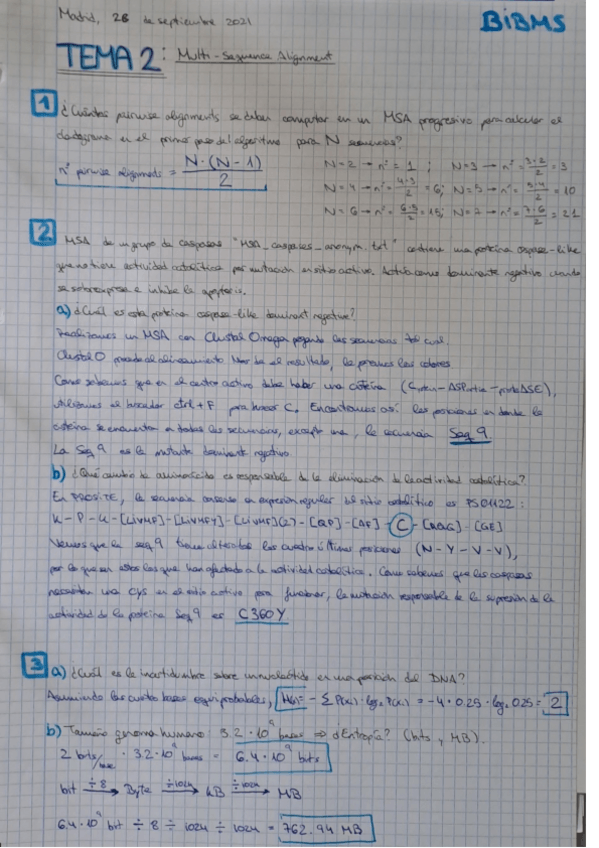 Madrid, 28 de septiembre 2021
BiBMS
TEMA 2: Multi-Sequence Alignment
1 ¿Cuántos pairwise alignments se deben computar en un MSA progresivo para calcular el
dendograma en el primer paso del algoritmo para N secuencias?
nº pairwise alignments = N·(N-1) / 2
N=2 → nº = 1 ; N=3 → nº = 3·2/2 = 3
N=4 → nº = 4·3/2 = 6; N=5 → nº = 5·4/2 = 10
N=6 → nº = 6·5/2 = 15; N=7 → nº = 7·6/2 = 21
2 MSA de un grupo de caspasas "MSA_caspases_anonym.txt" contiene una proteína caspase-like
que no tiene actividad catalítica por mutación en sitio activo. Actúa como dominante negativo cuando
se sobreexpresa e inhibe la apoptosis.
a) ¿Cuál es esta proteína caspase-like dominant negative?
Realizamos un MSA con Clustal Omega pegando las secuencias tal cual.
Clustal O procede al alineamiento. Una vez el resultado, le ponemos los colores
Como sabemos que en el centro activo debe haber una cisteína (Cystein-ASPartice-proteASE),
utilizamos el buscador ctrl+F para buscar C. Encontramos así las posiciones en donde la
cisteína se encuentra en todas las secuencias, excepto una, la secuencia Seq 9.
La Seq 9 es la mutante dominante negativo.
b) ¿Qué cambio de aminoácido es responsable de la eliminación de la actividad catalítica?
En PROSITE, la secuencia consenso en expresión regular del sitio catalítico es PS01122:
K-P-K-[LIVMF]-[LIVMFY]-[LIVMF](2)-[QP]-[AF]-C-[RQG]-[GE]
Vemos que la seq 9 tiene alteradas las cuatro últimas posiciones (N-Y-V-V),
por lo que son estas las que han afectado a la actividad catalítica. Como sabemos que las caspasas
necesitan una cys en el sitio activo para funcionar, la mutación responsable de la supresión de la
actividad de la proteína Seq 9 es C360Y
3 a) ¿Cuál es la incertidumbre sobre un nucleótido en una posición del DNA?
Asumiendo las cuatro bases equiprobables, H(x) = -Σ P(xi)·log₂ P(xi) = -4·0.25·log₂ 0.25 = 2
b) Tamaño genoma humano 3.2·10⁹ bases ⇒ ¿Entropía? (bits, MB).
2 bits/base · 3.2·10⁹ bases = 6.4·10⁹ bits
bit ÷8→ Byte ÷1024→ kB ÷1024→ MB
6.4·10⁹ bit ÷ 8 ÷ 1024 ÷ 1024 = 762.94 MB